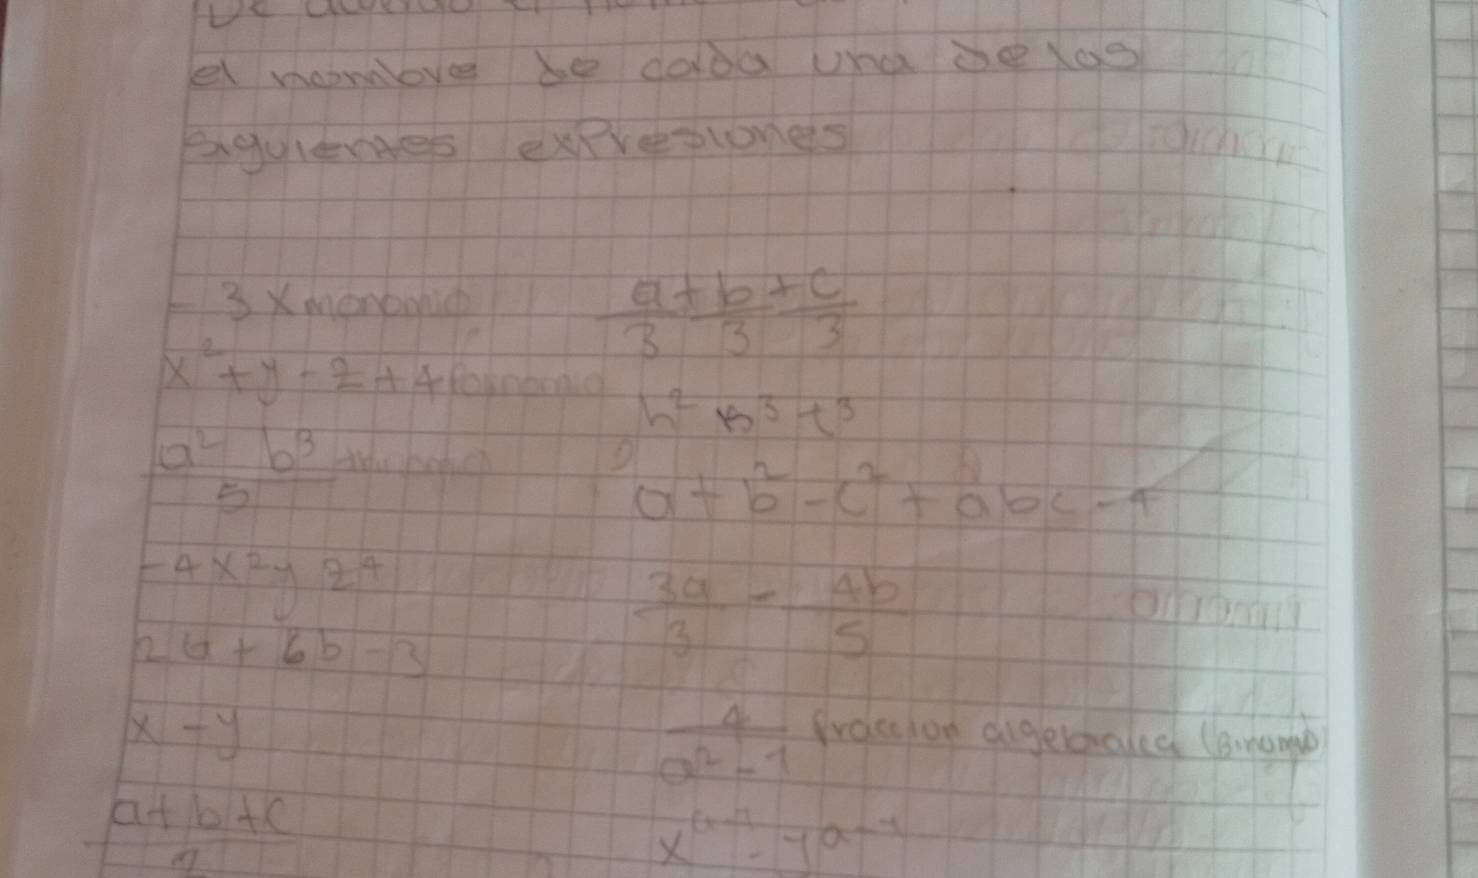 el nombre de cada una de las
siguientes expresiones
- 3x monomio
x² + y - z + 4
a² b³
5
-4x²y z⁴
2a + 6b - 3
x - y
a + b + c
a + b + c
3 3 3
h² n³ t³
a + b² - c² + abc - 4
3a - 4b
3 5
4 fraccion algebraica (Binomio)
a² - 1